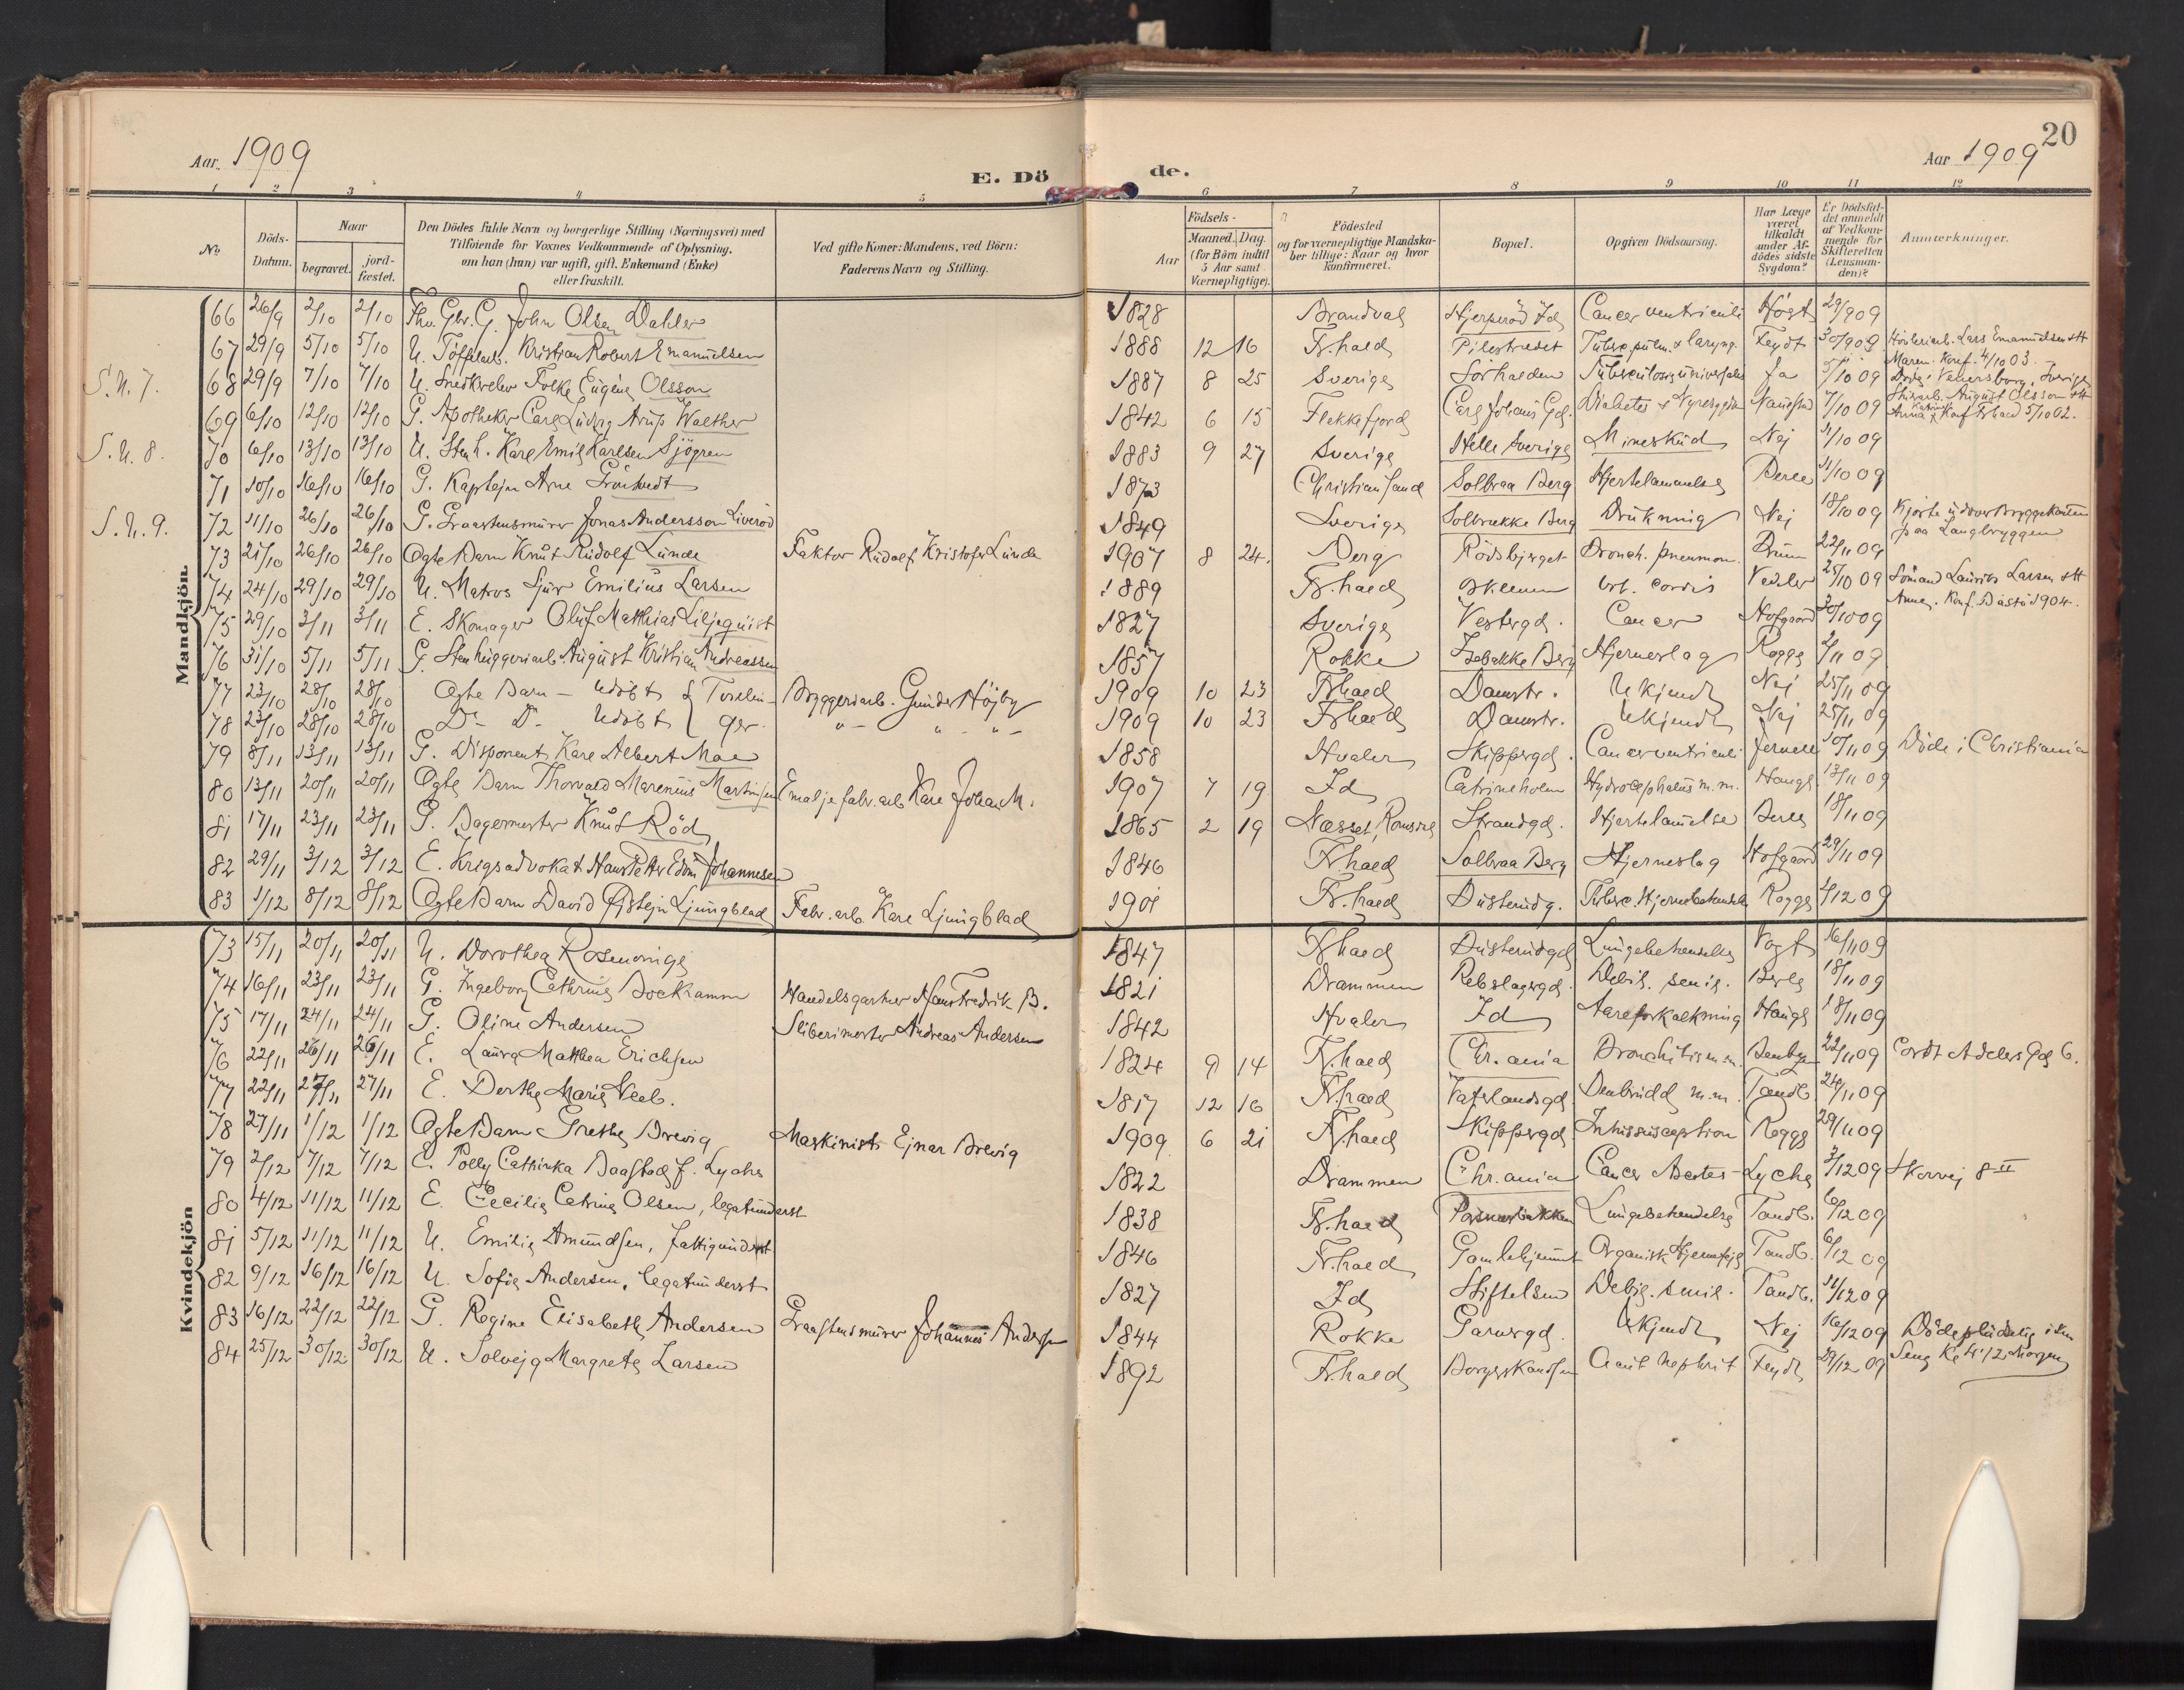 20
Aar 1909
E. Dö
de.
Aar 1909
1 2 3 4 5 6 7 8 9 10 11 12
No
Döds-Datum.
Naar
begravet.
jord-fæstet.
Den Dödes fulde Navn og borgerlige Stilling (Næringsvei) med
Tilföiende for Voxnes Vedkommende af Oplysning,
om han (hun) var ugift, gift, Enkemand (Enke)
eller fraskilt.
Ved gifte Koner: Mandens, ved Börn:
Faderens Navn og Stilling.
Födsels-
Aar
Maaned. Dag.
(for Börn indtil
5 Aar samt
Værnepligtige).
Födested
og for værnepligtige Mandska-
ber tillige: Naar og hvor
konfirmeret.
Bopæl.
Opgiven Dödsaarsag.
Har Læge
været
tilkaldt
under Af-
dödes sidste
Sygdom?
Er Dödsfal-
det anmeldt
af Vedkom-
mende for
Skifteretten
(Lensman-
den)?
Anmærkninger.
Mandkjön
66 26/9 2/10 2/10 John Olsen Dahler 1828 Brandval Cancer ventriculi 29/9 09
67 29/9 5/10 5/10 U. Kristian Robert Emanuelsen 1888 12 16 Fr.hald Pilestrædet Tuberc. pulm. & laryng. Feydt 30/9 09 Lars Emanuelsen
Maren. Konf. 4/10 03.
S.N. 7. 68 29/9 7/10 7/10 U. Snedkerelev Folke Eugéne Olsson 1887 8 25 Sverige Sörhalden Tuberculosis universalis Ja 5/10 09 Döde i Venersborg, Sverige
August Olsson
69 6/10 12/10 12/10 G. Apotheker Carl Ludvig Arup Walther 1842 6 15 Flekkefjord Carl Johans Gd. Diabetes & 7/10 09 Anna Konf Frhald 5/10 02.
S.N. 8. 70 6/10 13/10 13/10 U. Stenh. Karl Emil Karlsen Sjögren 1883 9 27 Sverige Helle Sverige Mineskud Nej 11/10 09
71 10/10 16/10 16/10 G. Kaptejn Arne 1873 Christiansand Solbraa Berg Hjertelammelse 11/10 09
S.N. 9. 72 11/10 26/10 26/10 G. Graastensmurer Jonas Andersson Liveröd 1849 Sverige Solbrække Berg Drukning Nej 18/10 09 Kjörte udover Bryggekanten
paa Langbryggen
73 21/10 26/10 26/10 Ægte Barn Knut Rudolf Lunde Faktor Rudolf Kristofer Lunde 1907 8 24. Berg Rödsbjerget Bronch. pneumon. 22/11 09
74 24/10 29/10 29/10 U. Matros Sjur Emilius Larsen 1889 Fr.hald Vit. cordis Vedeler 25/10 09 Sömand Laurits Larsen
Anne. Konf. Båstö 1904.
75 29/10 3/11 3/11 E. Skomager Oluf Matthias Liljequist 1827 Sverige Vestergd. Cancer Hofgaard 30/10 09
76 31/10 5/11 5/11 G. Stenhuggeriarb. August Kristian Andreassen 1857 Rokke Isebakke Berg Hjerneslag Rogge 2/11 09
77 23/10 28/10 28/10 Ægte Barn - Udöbt Tvillin- Bryggeriarb. Gunder Höjby 1909 10 23 Frhald Damstr. Ukjendt Nej 25/11 09
78 23/10 28/10 28/10 Do Do Udöbt ger. " - " - " - 1909 10 23 Frhald Damstr. Ukjendt Nej 25/11 09
79 8/11 13/11 13/11 G. Disponent Karl Albert Moe 1858 Hvaler Skippergd. Cancer ventriculi Jervell 10/11 09 Döde i Christiania
80 13/11 20/11 20/11 Ægte Barn Thorvald Marenius Martinsen Emaljefabr.arb. Karl Johan M. 1907 7 19 Id Catrineholm Hydrocephalus m.m. Hauge 13/11 09
81 17/11 23/11 23/11 G. Bagermester Knut Röd 1865 2 19 Næsset, Romsdal Strandgd. Hjertelamelse 18/11 09
82 29/11 3/12 3/12 E. Krigsadvokat Hans Petter Edvin Johannesen 1846 Fr.hald Solbraa Berg Hjerneslag Hofgaard 29/11 09
83 1/12 8/12 8/12 Ægte Barn David Øistejn Ljungblad Fabr. arb. Karl Ljungblad 1901 Fr.hald Busterudg. Tuberc. Hjernebetændelse Rogge 4/12 09
Kvindekjön
73 15/11 20/11 20/11 U. Dorothea Rosenvinge 1847 Frhald Busterudgd Lungebetændelse Vogt 16/11 09
74 16/11 23/11 23/11 G. Ingeborg Cathrine Bockramm Handelsgartner Hans Fredrik B. 1821 Drammen Rebslagergd. Debil. senil. 18/11 09
75 17/11 24/11 24/11 G. Oline Andersen Sliberimester Andreas Andersen 1842 Hvaler Id Aareforkalkning Hauge 18/11 09
76 22/11 26/11 26/11 E. Laura Mathea Erichsen 1824 9 14 Fr.hald Chr.ania Bronchitis m.m. 22/11 09 Cordt Adelers Gd 6.
77 22/11 27/11 27/11 E. Derthe Marie Neeb. 1817 12 16 Fr.hald Vaterlandsgd. Benbrudd m.m. Tandb. 24/11 09
78 27/11 1/12 1/12 Ægte Barn Grethe Brevig Maskinist Ejnar Brevig 1909 6 21 Fr.hald Skippergd. Intussusception Rogge 29/11 09
79 2/12 7/12 7/12 E. Polly Cathinka Baastad f. Lyche 1822 Drammen Chr.ania Cancer Ascites - Lyche 3/12 09 8 II
80 4/12 11/12 11/12 E. Cecilie Catrine Olsen, legatunderst 1838 Fr.hald Lungebetændelse Tandb. 6/12 09
81 5/12 11/12 11/12 U. Emilie Amundsen, fattigunderst 1846 Fr.hald Gamlehjemmet Organisk Tandb. 6/12 09
82 9/12 16/12 16/12 U. Sofie Andersen, legatunderst 1827 Id Stiftelsen Debil. senil. Tandb. 11/12 09
83 16/12 22/12 22/12 G. Regine Elisabeth Andersen Graastensmurer Johannes Andersen 1844 Rokke Garvergd. Ukjendt Nej 16/12 09 Döde pludselig i sin
Seng Kl 4 1/2 Morgen
84 25/12 30/12 30/12 U. Solvejg Margrete Larsen 1892 Fr.hald Borgerskandsen Acut Nephrit Feydt 29/12 09